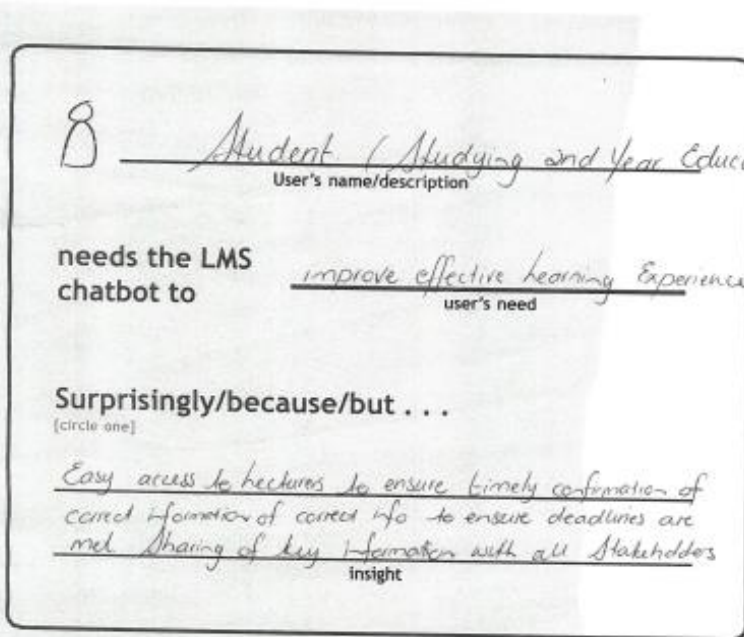 Student (Studying 2nd Year Educ
User's name/description
needs the LMS
chatbot to
improve effective Learning Experience
user's need
Surprisingly/because/but . . .
[circle one]
Easy access to Lecturers to ensure timely confirmation of
correct information of correct info to ensure deadlines are
met Sharing of key information with all Stakeholders
insight